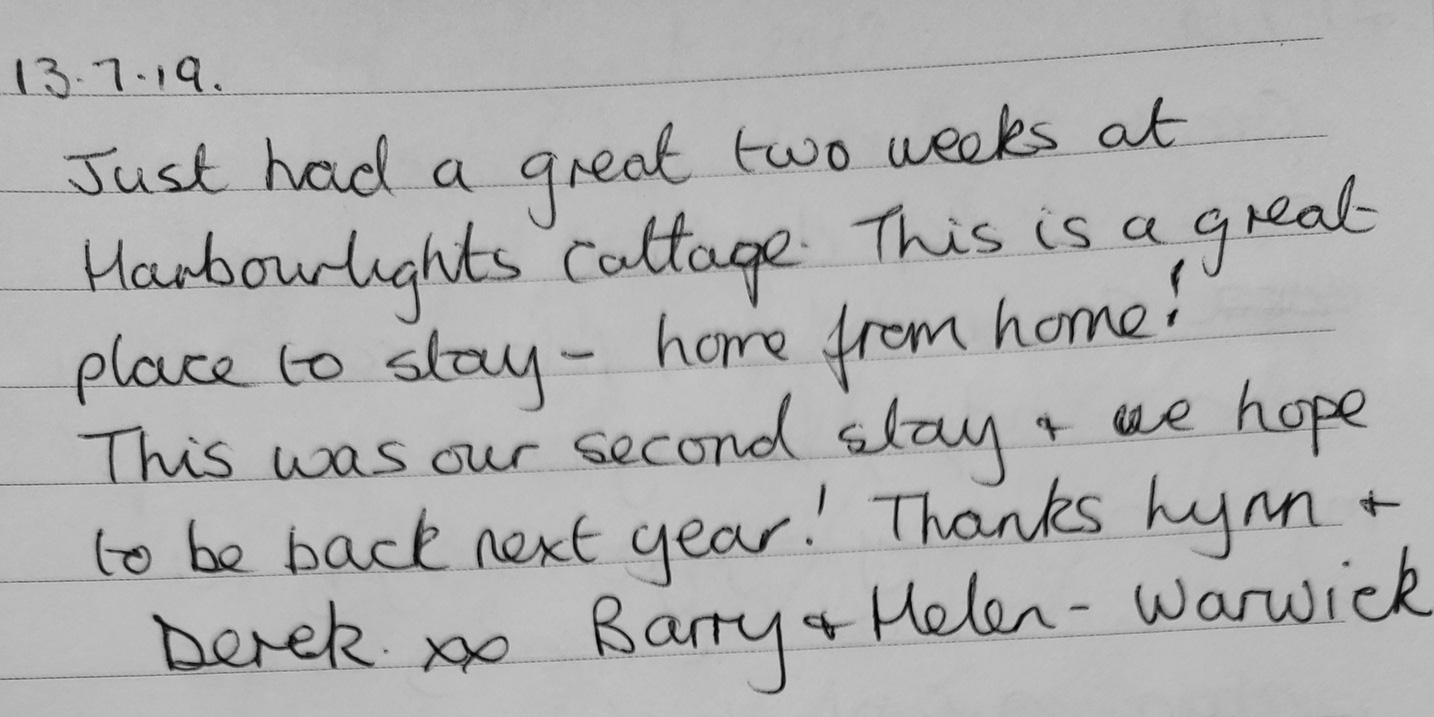 13.7.19.
Just had a great two weeks at
Harbourlights Cottage. This is a great
place to stay - home from home!
This was our second stay + we hope
to be back next year! Thanks Lynn +
Derek. xx Barry + Helen - Warwick